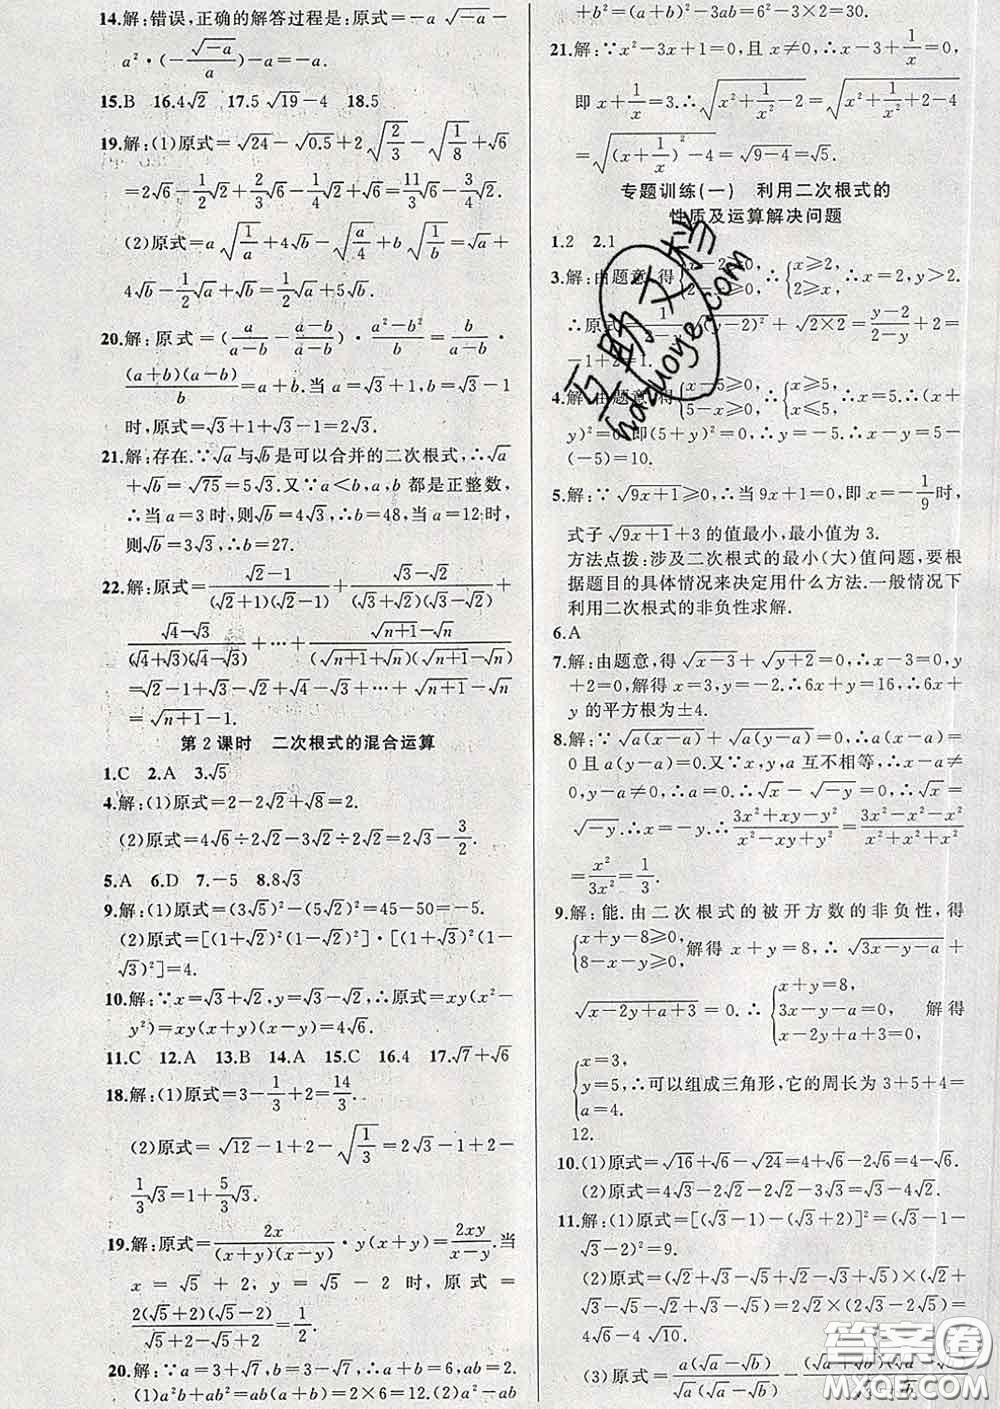 14.解:错误,正确的解答过程是:原式=-a√(-a)-
a²·(-√(-a)/a)-a=-a.
15.B 16.4√2 17.5√19-4 18.5
19.解:(1)原式=√24-√0.5+2√(2/3)-√(1/8)+√6
=2√6-1/2√2+2/3√6-1/4√2+√6=11/3√6-3/4√2.
(2)原式=a√(1/a)+4√b-√a/4+b√(1/b)=√a+
4√b-1/2√a+√b=1/2√a+5√b.
20.解:原式=(a/(a-b)-(a-b)/(a-b))·(a²-b²)/b=b/(a-b)
·(a+b)(a-b)/b=a+b.当a=√3+1,b=√3-1
时,原式=√3+1+√3-1=2√3.
21.解:存在.∵√a与√b是可以合并的二次根式,∴√a
+√b=√75=5√3.又∵a<b,a,b都是正整数,
∴当a=3时,则√b=4√3,∴b=48,当a=12时,
则√b=3√3,∴b=27.
22.解:原式=(√2-1)/((√2+1)(√2-1))+(√3-√2)/((√3+√2)(√3-√2))+
(√4-√3)/((√4+√3)(√4-√3))+…+(√(n+1)-√n)/((√(n+1)+√n)(√(n+1)-√n))
=√2-1+√3-√2+√4-√3+…+√(n+1)-√n
=√(n+1)-1.
第2课时 二次根式的混合运算
1.C 2.A 3.√5
4.解:(1)原式=2-2√2+√8=2.
(2)原式=4√6÷2√2-3√2÷2√2=2√3-3/2.
5.A 6.D 7.-5 8.8√3
9.解:(1)原式=(3√5)²-(5√2)²=45-50=-5.
(2)原式=[(1+√2)²(1-√2)²]·[(1+√3)²(1-
√3)²]=4.
10.解:∵x=√3+√2,y=√3-√2,∴原式=xy(x²-
y²)=xy(x+y)(x-y)=4√6.
11.C 12.A 13.B 14.A 15.C 16.4 17.√7+√6
18.解:(1)原式=3-1/3+2=14/3.
(2)原式=√12-1+2-√(1/3)=2√3-1+2-
1/3√3=1+5/3√3.
19.解:原式=2x/((x+y)(x-y))·y(x+y)=2xy/(x-y).当
x=√5+2,y=√5-2时,原式=
2(√5+2)(√5-2)/(√5+2-√5+2)=1/2.
20.解:∵a=3+√7,b=3-√7,∴a+b=6,ab=2.
(1)a²b+ab²=ab(a+b)=2×6=12.(2)a²-ab
+b²=(a+b)²-3ab=6²-3×2=30.
21.解:∵x²-3x+1=0,且x≠0,∴x-3+1/x=0,
即x+1/x=3.∴√(x²+1/x²-2)=√(x²+1/x²+2-4)
=√((x+1/x)²-4)=√(9-4)=√5.
专题训练(一) 利用二次根式的
性质及运算解决问题
1.2 2.1
3.解:由题意,得{x-2≥0,2-x≥0,∴{x≥2,2≥x.∴x=2,y>2.
√(y-2)²+√(2×2)=(y-2)/(2-y)+2=
-1+2=1.
4.解:由题意,得{x-5≥0,5-x≥0,∴{x≥5,x≤5.∴x=5.∴(x+
y)²=0,即(5+y)²=0,∴y=-5.∴x-y=5-
(-5)=10.
5.解:∵√(9x+1)≥0,∴当9x+1=0,即x=-1/9时,
式子√(9x+1)+3的值最小,最小值为3.
方法点拨:涉及二次根式的最小(大)值问题,要根
据题目的具体情况来决定用什么方法.一般情况下
利用二次根式的非负性求解.
6.A
7.解:由题意,得√(x-3)+√(y+2)=0,∴x-3=0,y
+2=0,解得x=3,y=-2.∴6x+y=16,∴6x+
y的平方根为±4.
8.解:∵√(a(x-a))+√(a(y-a))=0,∴a(x-a)=
0且a(y-a)=0.又∵x,y,a互不相等,∴x-a≠
0,y-a≠0,∴a=0.∴√x-√(-y)=0,∴√x=
√(-y).∴x=-y.∴(3x²+xy-y²)/(x²-xy+y²)=(3x²-x²-x²)/(x²+x²+x²)
=x²/3x²=1/3.
9.解:能.由二次根式的被开方数的非负性,得
{x+y-8≥0,8-x-y≥0,解得x+y=8,∴√(3x-y-a)+
√(x-2y+a+3)=0.∴{x+y=8,3x-y-a=0,x-2y+a+3=0,解得
{x=3,y=5,a=4.∴可以组成三角形,它的周长为3+5+4=
12.
10.(1)原式=√16+√6-√24=4+√6-2√6=4-√6.
(2)原式=4√3-√2-2√2-√2-3√3=√3-4√2.
11.解:(1)原式=[(√3-1)-(√3+2)]²=(√3-1-
√3-2)²=9.
(2)原式=(√2+√3-√5+√2-√3+√5)×(√2+
√3-√5-√2+√3-√5)=2√2×(2√3-2√5)=
4√6-4√10.
(3)原式=a(√a-√b)/(√a(√a-√b))-
互助文档
huzhuoye.com
答案圈
MXQE.COM